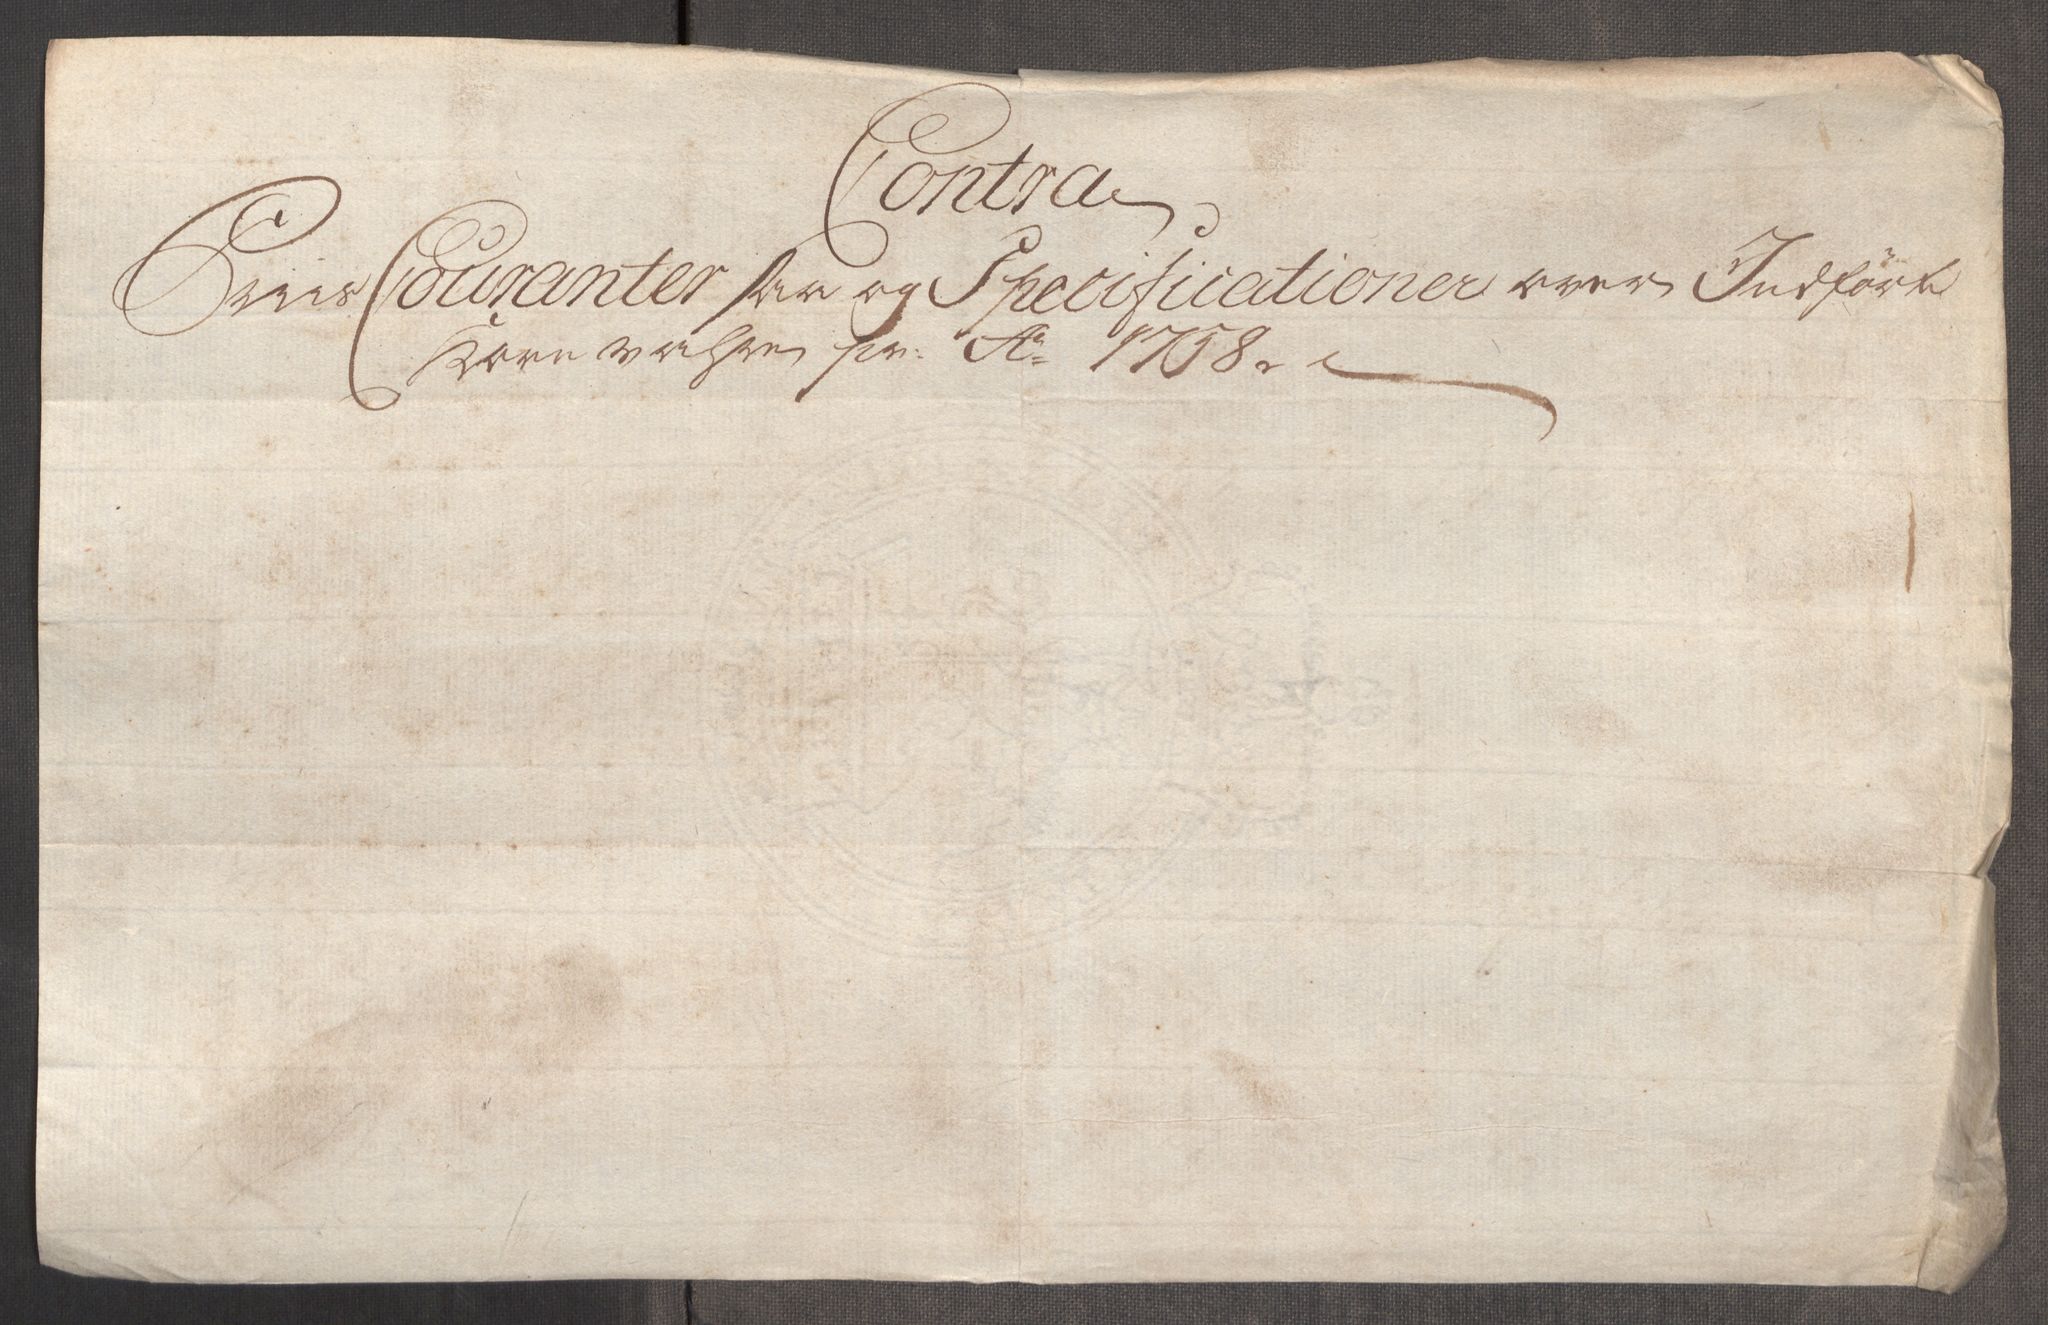 Contra
Priis Couranter saa og Specificationer over Indført
Korn vahre pr. Ao 1758.